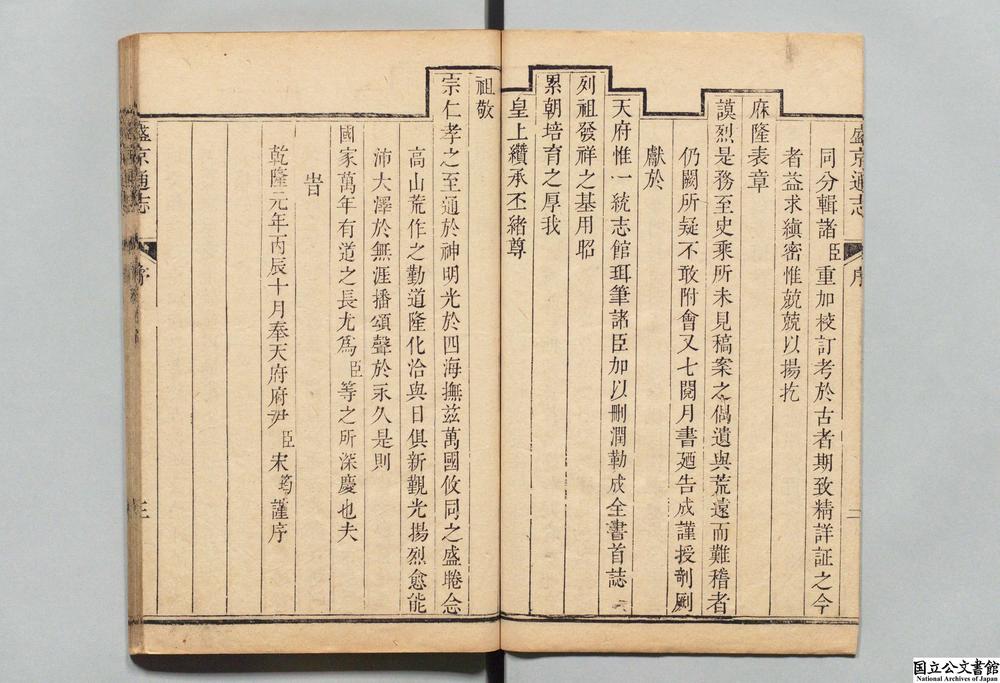 盛京通志 序 二
同分輯諸臣重加校訂考於古者期致精詳証之今
者益求縝密惟兢兢以揚扢
庥隆表章
謨烈是務至史乘所未見稿案之偶遺與荒遠而難稽者
仍闕所疑不敢附會又七閱月書廼告成謹授剞劂
獻於
天府惟一統志館珥筆諸臣加以刪潤勒成全書首誌
列祖發祥之基用昭
累朝培育之厚我
皇上纘承丕緒尊
祖敬
宗仁孝之至通於神明光於四海撫茲萬國攸同之盛惓念
高山荒作之勤道隆化洽與日俱新觀光揚烈愈能
沛大澤於無涯播頌聲於永久是則
國家萬年有道之長尤為臣等之所深慶也夫
旹
乾隆元年丙辰十月奉天府府尹臣宋筠謹序
盛京通志 序 三
国立公文書館
National Archives of Japan